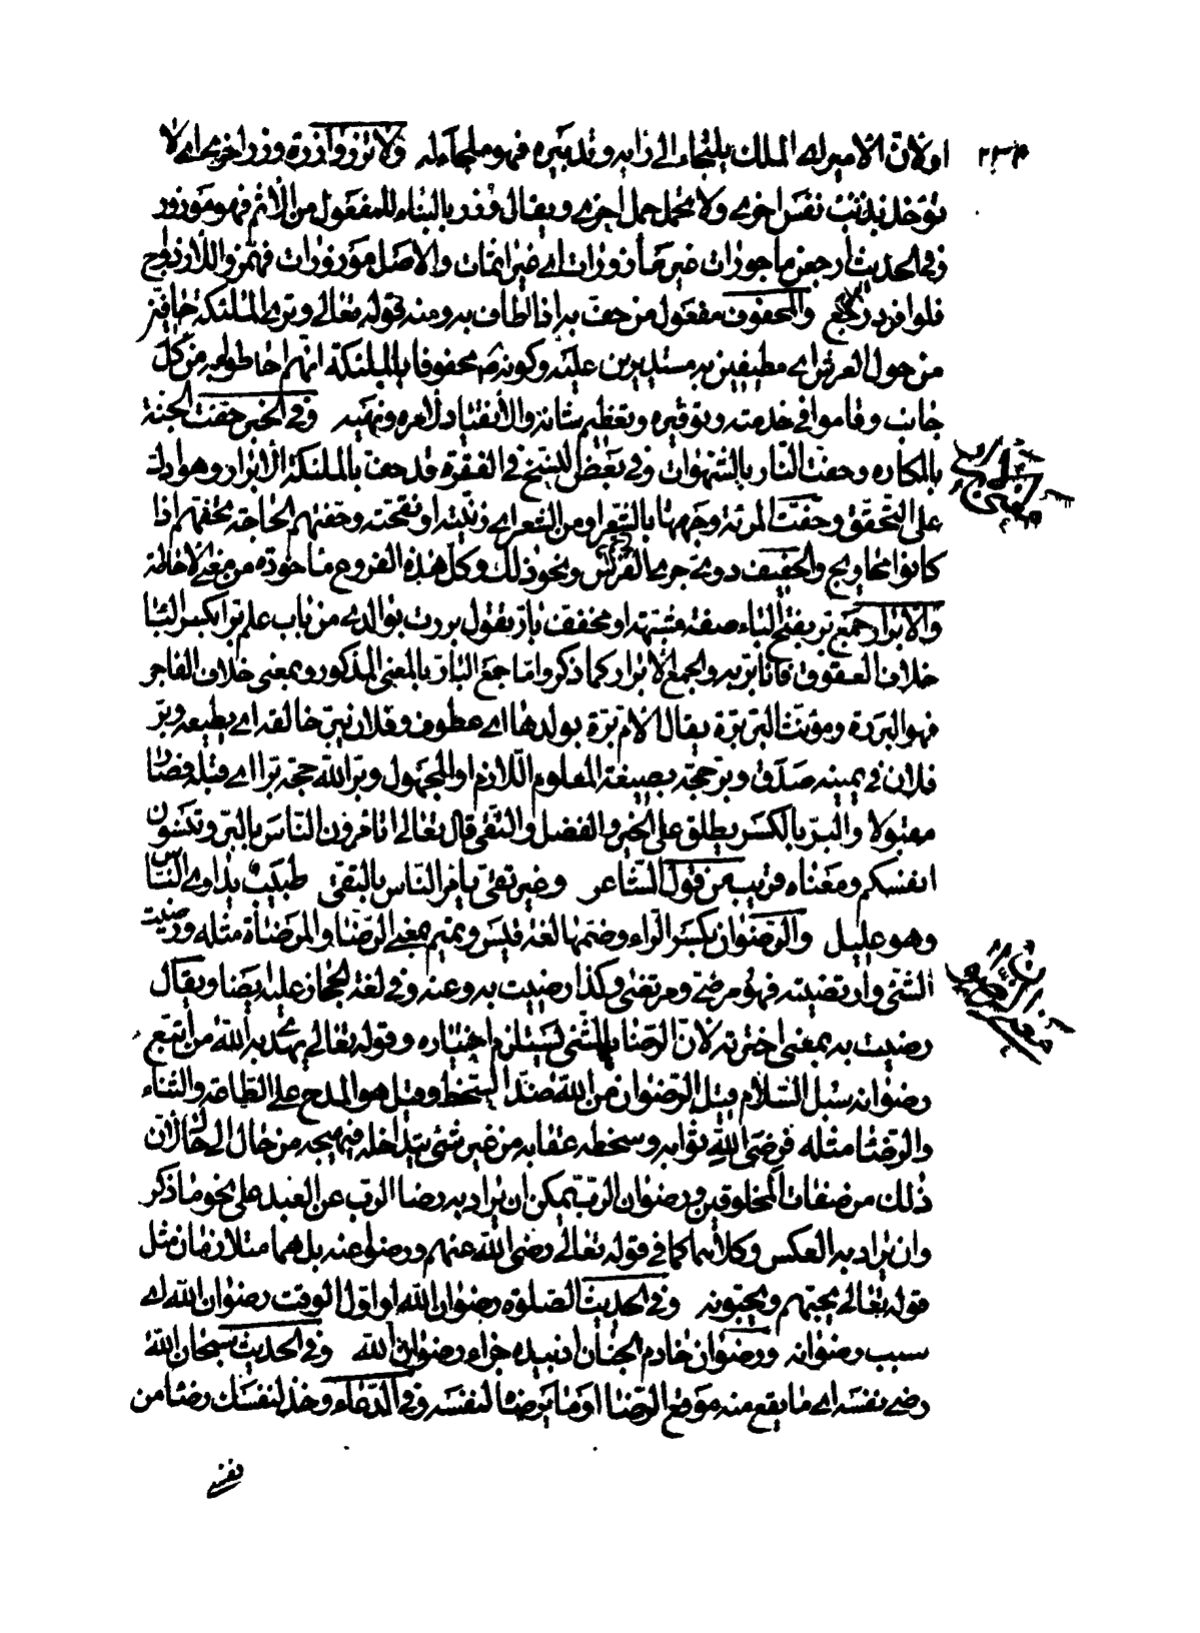 ٢٣٤
او لان الامير اى الملك يلتجاء الى رايه وتدبيره فهو ملجاء له ولا تزر وازرة وزر اخرى اى لا
تؤخذ بذنب نفس اخرى ولا تحمل حمل اخرى ويقال وزر بالبناء للمفعول من الاثم فهو موزور
وفى الحديث ارجعن ماجورات غير مأزورات اى غير اثمات والاصل موزورات فهمز واللازدواج
فلو افرد رجع والمحفوف مفعول من حف به اذا طاف به ومنه قوله تعالى وترى الملئكة حافين
من حول العرش اى مطيفين به مستديرين عليه وكونه محفوفا بالملئكة انهم احاطوا به من كل
جانب وقاموا فى خدمته وتوقيره وتعظيم شانه والانقياد لامره ونهيه وفى الخبر حفت الجنة
بالمكاره وحفت النار بالشهوات وفى بعض النسخ فى الفقرة قد حف بالملئكة الابرار وهو ادل
على التحقق وحفت المرئة وجهها بالشعر او من الشعر اى زينته او نقحته وحفتهم الحاجة تحفهم اذا
كانوا محاويج والحفيف دوى جرى الفرس ونحو ذلك وكل هذه الفروع ماخوذه من معنى الاحاطة
والابرار جمع بر بفتح الباء صفة مشبهة او مخفف بار تقول بررت بوالدى من باب علم برا بكسر الباء
خلاف العقوق فانا بر به والجمع الابرار كما ذكر واما جمع البار بالمعنى المذكور وبمعنى خلاف الفاجر
فهو البررة ومؤنث البر برة يقال الام برة بولدها اى عطوف وفلان يبر خالقه اى يطيعه وبر
فلان فى يمينه صدق وبر حجه بصيغة المعلوم اللازم او المجهول وبر الله حجه برا اى قبله فصار
مقبولا والبر بالكسر يطلق على الخير والفضل والتقى قال تعالى اتامرون الناس بالبر وتنسون
انفسكم ومعناه قريب من قول الشاعر وغير تقى يامر الناس بالتقى طبيب يداوى الناس
وهو عليل والرضوان بكسر الراء وضمها لغة قيس وتميم بمعنى الرضا والمرضاة مثله ورضيت
الشئ وارتضيته فهو مرضى ومرتضى وكذا رضيت به وعنه وفى لغة الحجاز عليه ايضا ويقال
رضيت به بمعنى اخترته لان الرضا بالشئ يستلزم اختياره وقوله تعالى يهدى به الله من اتبع
رضوانه سبل السلام قيل الرضوان من الله ضد السخط وقيل هو المدح على الطاعة والثناء
والرضا مثله فرضى الله ثوابه وسخطه عقابه من غير شئ يتداخله فيهيجه من حال الى حال لان
ذلك من صفات المخلوقين ورضوان الرب يمكن ان يراد به رضا الرب عن العبد على نحو ما ذكر
وان يراد به العكس وكلاهما كما فى قوله تعالى رضى الله عنهم ورضوا عنه بل هما متلازمان مثل
قوله تعالى يحبهم ويحبونه وفى الحديث الصلوة رضوان الله او اول الوقت رضوان الله اى
سبب رضوانه ورضوان خادم الجنان او بيده جزاء رضوان الله وفى الحديث سبحان الله
رضى نفسه اى ما يقع منه موقع الرضا او ما يرضاه لنفسه وفى الدعاء وخذ لنفسك رضا من
نفسى
معنى الرضوان